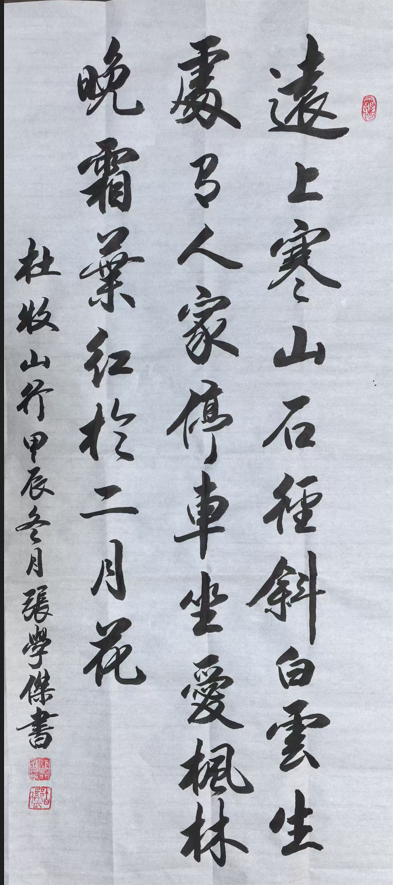 遠上寒山石徑斜白雲生
處有人家停車坐愛楓林
晚霜葉紅於二月花
杜牧山行甲辰冬月張學傑書